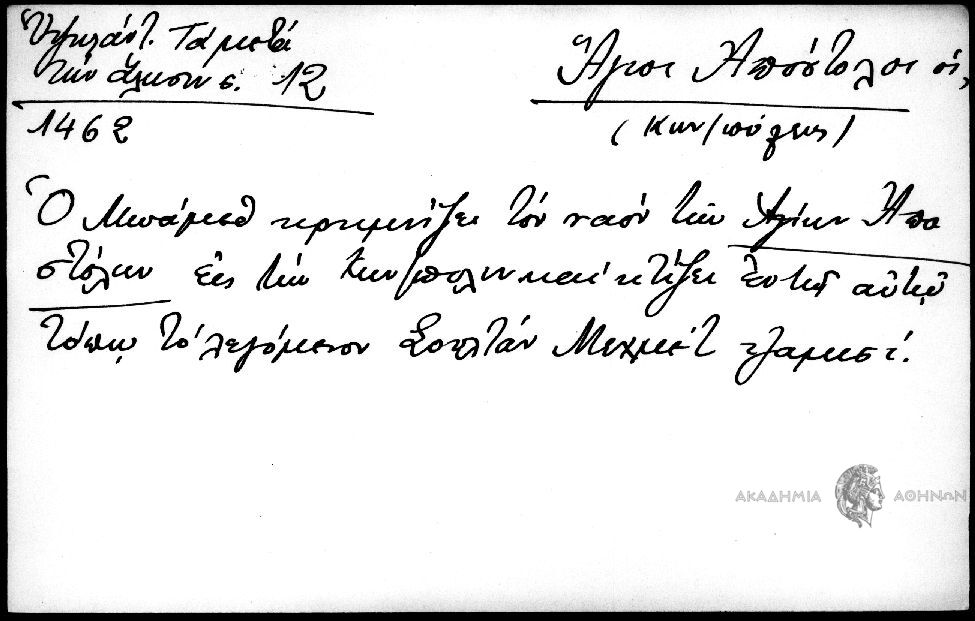 Ὑψηλάντ. Τά μετά
τὴν ἅλωσιν σ. 12
1462
Ἅγιοι Ἀπόστολοι οἱ,
(Κων/πόλεως)
Ὁ Μωάμεθ κρημνίζει τόν ναόν τῶν Ἁγίων Ἀπο
στόλων εἰς τήν Κων/πολιν καί κτίζει ἐν τῷ αὐτῷ
τόπῳ τό λεγόμενον Σουλτάν Μεχμέτ τζαμισί.
ΑΚΑΔΗΜΙΑ ΑΘΗΝΩΝ